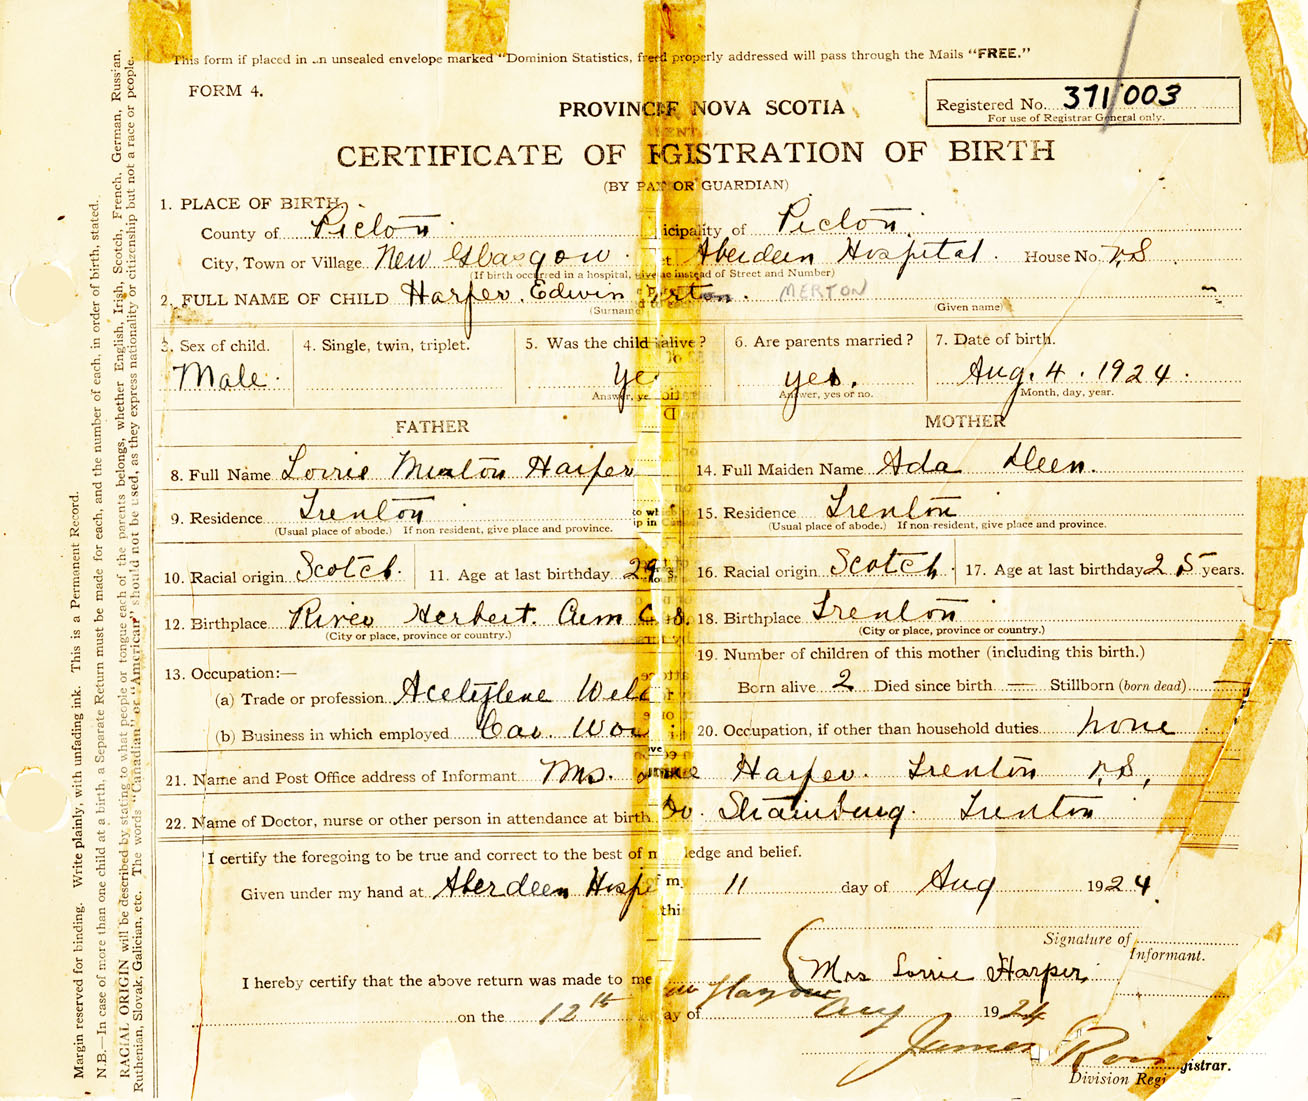 This form if placed in an unsealed envelope marked "Dominion Statistics, free" properly addressed will pass through the Mails "FREE."
FORM 4.
Registered No. 371003
For use of Registrar General only.
PROVINCE NOVA SCOTIA
CERTIFICATE OF REGISTRATION OF BIRTH
(BY PA OR GUARDIAN)
1. PLACE OF BIRTH
County of Pictou icipality of Pictou.
City, Town or Village New Glasgow. et Aberdeen Hospital. House No. N.S.
(If birth occurred in a hospital, give me instead of Street and Number)
2. FULL NAME OF CHILD Harper, Edwin erton. MERTON
(Surname (Given name)
3. Sex of child. 4. Single, twin, triplet. 5. Was the child alive? 6. Are parents married? 7. Date of birth.
Male. Yes yes. Aug. 4. 1924.
Answer, ye Answer, yes or no. Month, day, year.
FATHER MOTHER
8. Full Name Lorrie Merton Harper 14. Full Maiden Name Ada Deen.
9. Residence Trenton 15. Residence Trenton
(Usual place of abode.) If non resident, give place and province. (Usual place of abode.) If non-resident, give place and province.
10. Racial origin Scotch. 11. Age at last birthday 29 16. Racial origin Scotch. 17. Age at last birthday 25 years.
12. Birthplace River Herbert. Cum 18. Birthplace Trenton
(City or place, province or country.) (City or place, province or country.)
19. Number of children of this mother (including this birth.)
13. Occupation:—
(a) Trade or profession Acetylene Wel Born alive 2 Died since birth — Stillborn (born dead) —
(b) Business in which employed Car. Wor 20. Occupation, if other than household duties none
21. Name and Post Office address of Informant Mrs. Harper. Trenton N.S.,
22. Name of Doctor, nurse or other person in attendance at birth. Dr. Trenton
I certify the foregoing to be true and correct to the best of m ledge and belief.
Given under my hand at Aberdeen Hospi 11 day of Aug 1924.
Signature of
Informant.
Mrs Lorrie Harper
I hereby certify that the above return was made to me Glasgow
on the 12th ay of Aug 1924
James Ross
Division Registrar.
Margin reserved for binding. Write plainly, with unfading ink. This is a Permanent Record.
N.B.—In case of more than one child at a birth, a Separate Return must be made for each, and the number of each, in order of birth, stated.
RACIAL ORIGIN will be described by stating to what people or tongue each of the parents belongs, whether English, Irish, Scotch, French, German, Russian,
Ruthenian, Slovak, Galician, etc. The words "Canadian" or "American" should not be used, as they express nationality or citizenship but not a race or people.